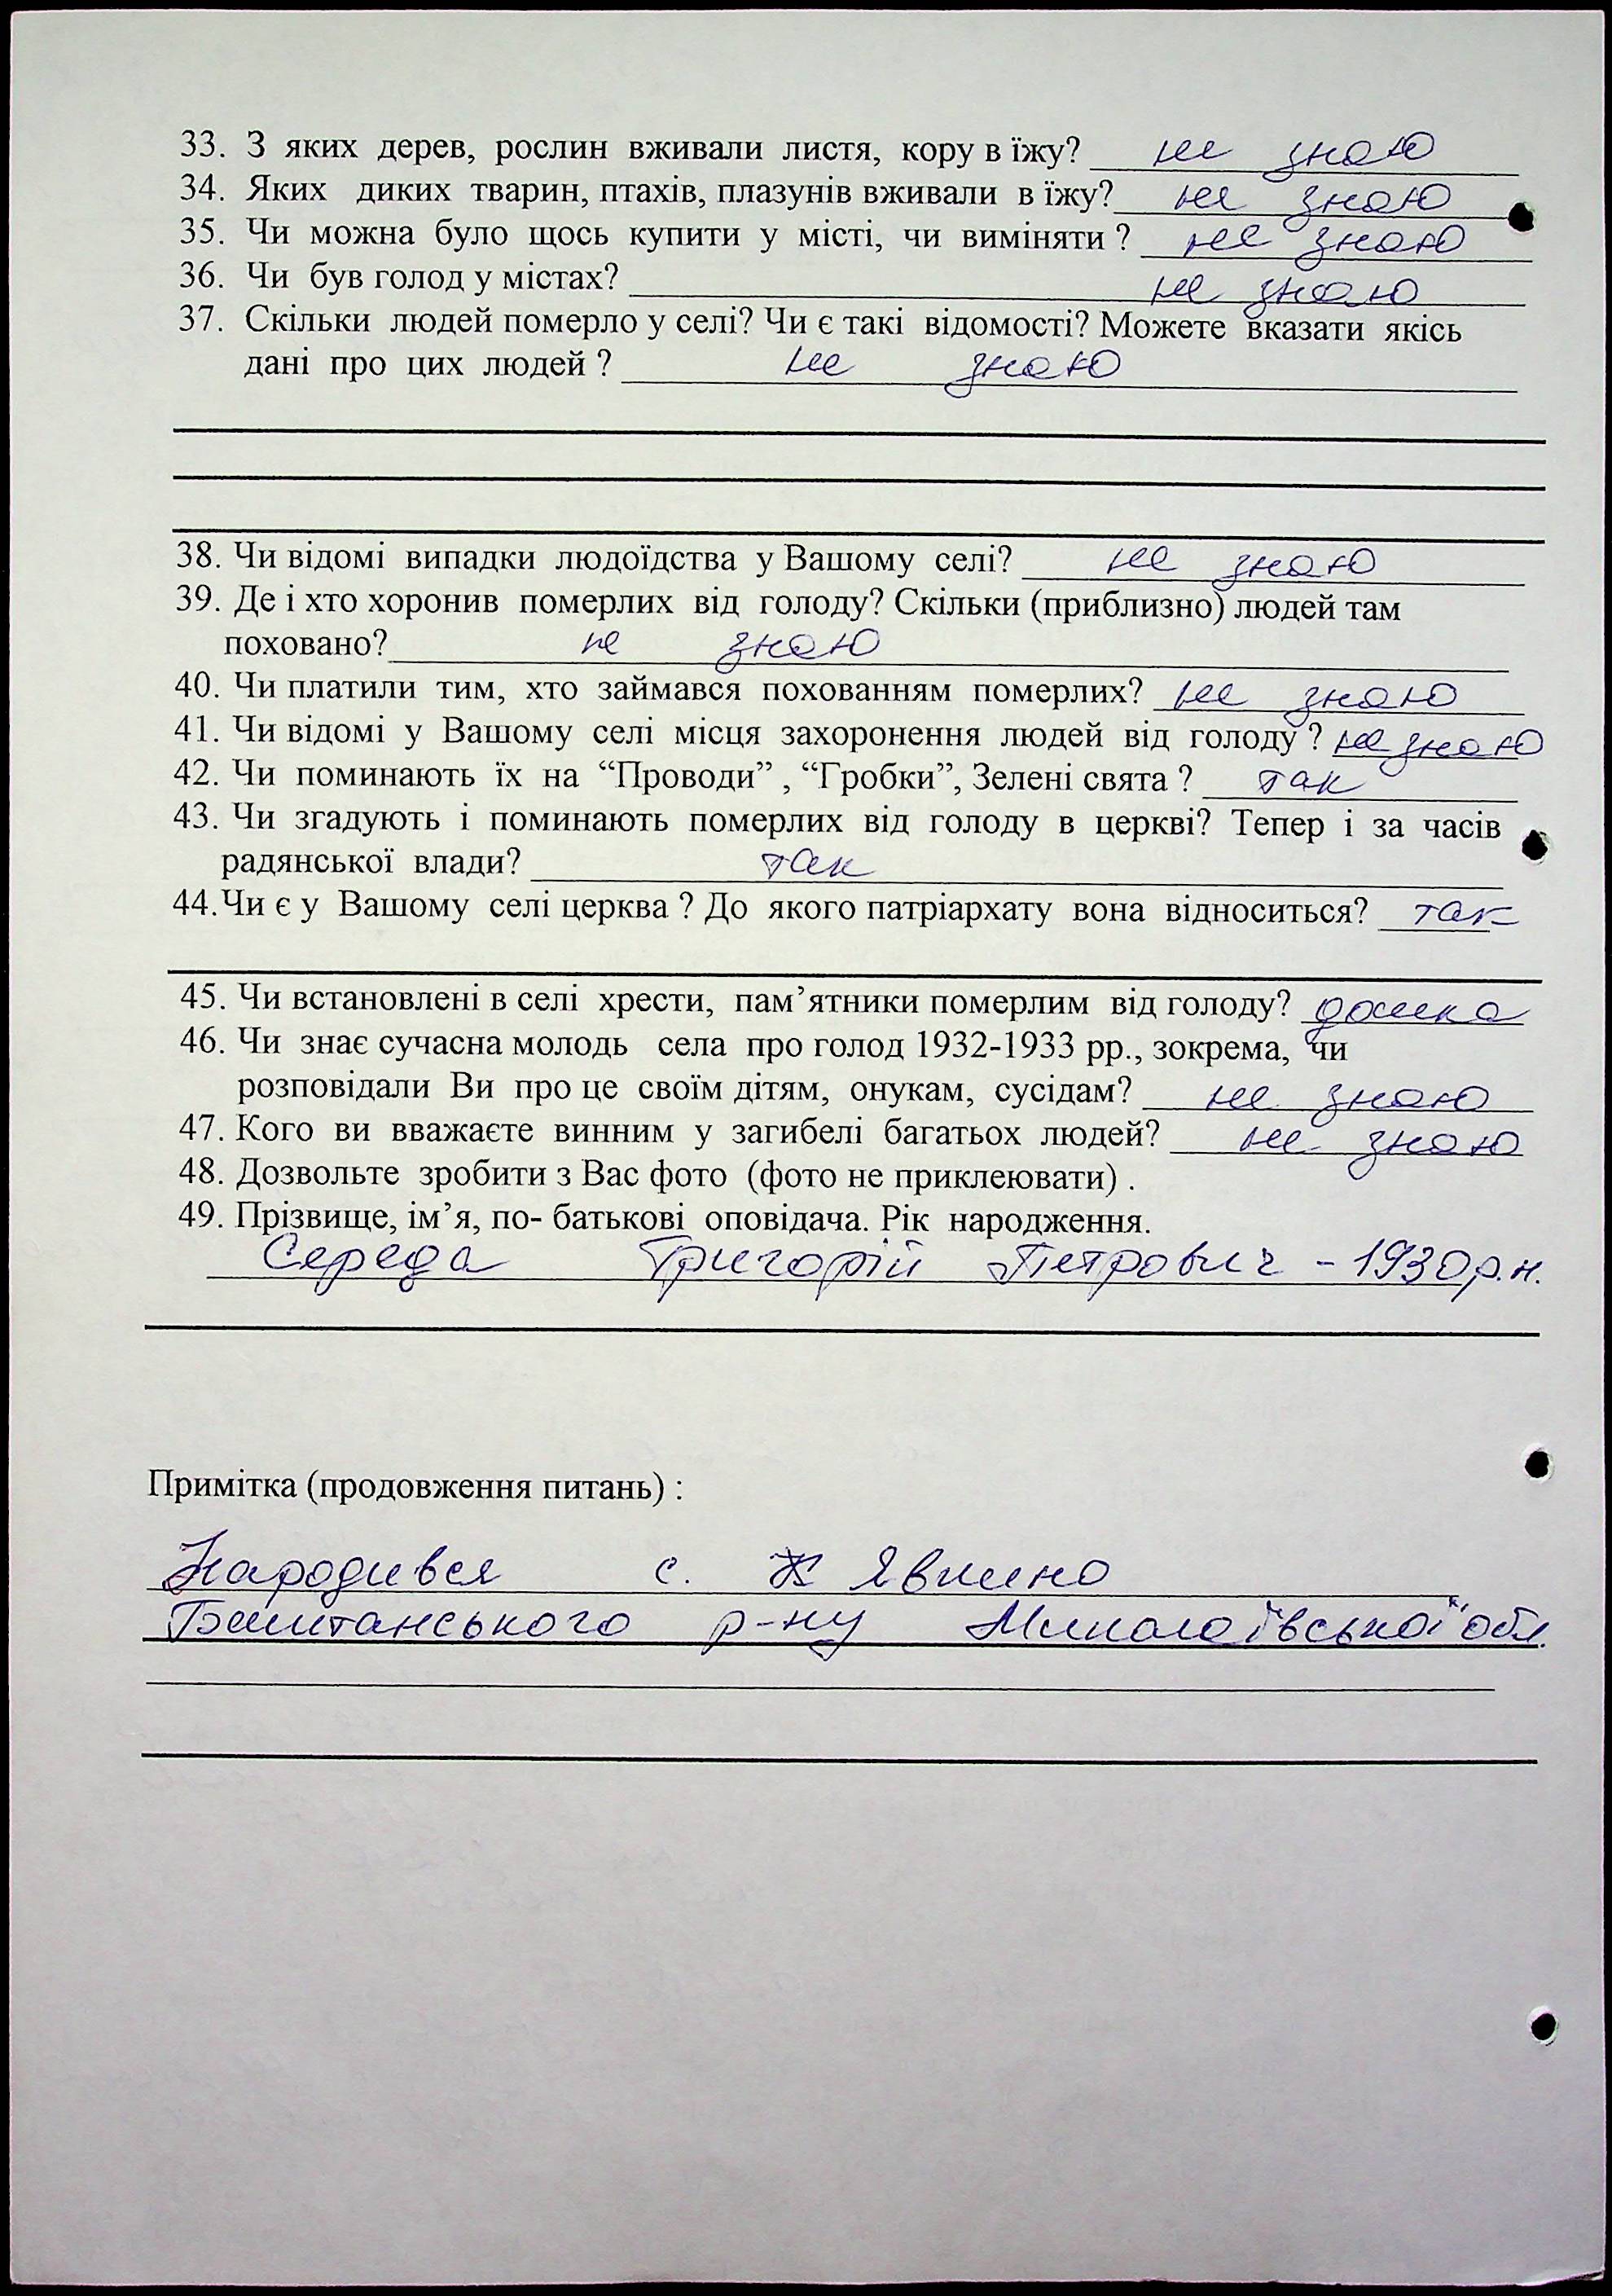 33. З яких дерев, рослин вживали листя, кору в їжу? не знаю
34. Яких диких тварин, птахів, плазунів вживали в їжу? не знаю
35. Чи можна було щось купити у місті, чи виміняти ? не знаю
36. Чи був голод у містах? не знаю
37. Скільки людей померло у селі? Чи є такі відомості? Можете вказати якісь
дані про цих людей ? не знаю
38. Чи відомі випадки людоїдства у Вашому селі? не знаю
39. Де і хто хоронив померлих від голоду? Скільки (приблизно) людей там
поховано? не знаю
40. Чи платили тим, хто займався похованням померлих? не знаю
41. Чи відомі у Вашому селі місця захоронення людей від голоду ? не знаю
42. Чи поминають їх на “Проводи” , “Гробки”, Зелені свята ? так
43. Чи згадують і поминають померлих від голоду в церкві? Тепер і за часів
радянської влади? так
44.Чи є у Вашому селі церква ? До якого патріархату вона відноситься? так
45. Чи встановлені в селі хрести, пам’ятники померлим від голоду? дошка
46. Чи знає сучасна молодь села про голод 1932-1933 рр., зокрема, чи
розповідали Ви про це своїм дітям, онукам, сусідам? не знаю
47. Кого ви вважаєте винним у загибелі багатьох людей? не знаю
48. Дозвольте зробити з Вас фото (фото не приклеювати) .
49. Прізвище, ім’я, по- батькові оповідача. Рік народження.
Середа Григорій Петрович - 1930 р.н.
Примітка (продовження питань) :
Народився с. Явкино
Баштанського р-ну Миколаївської обл.